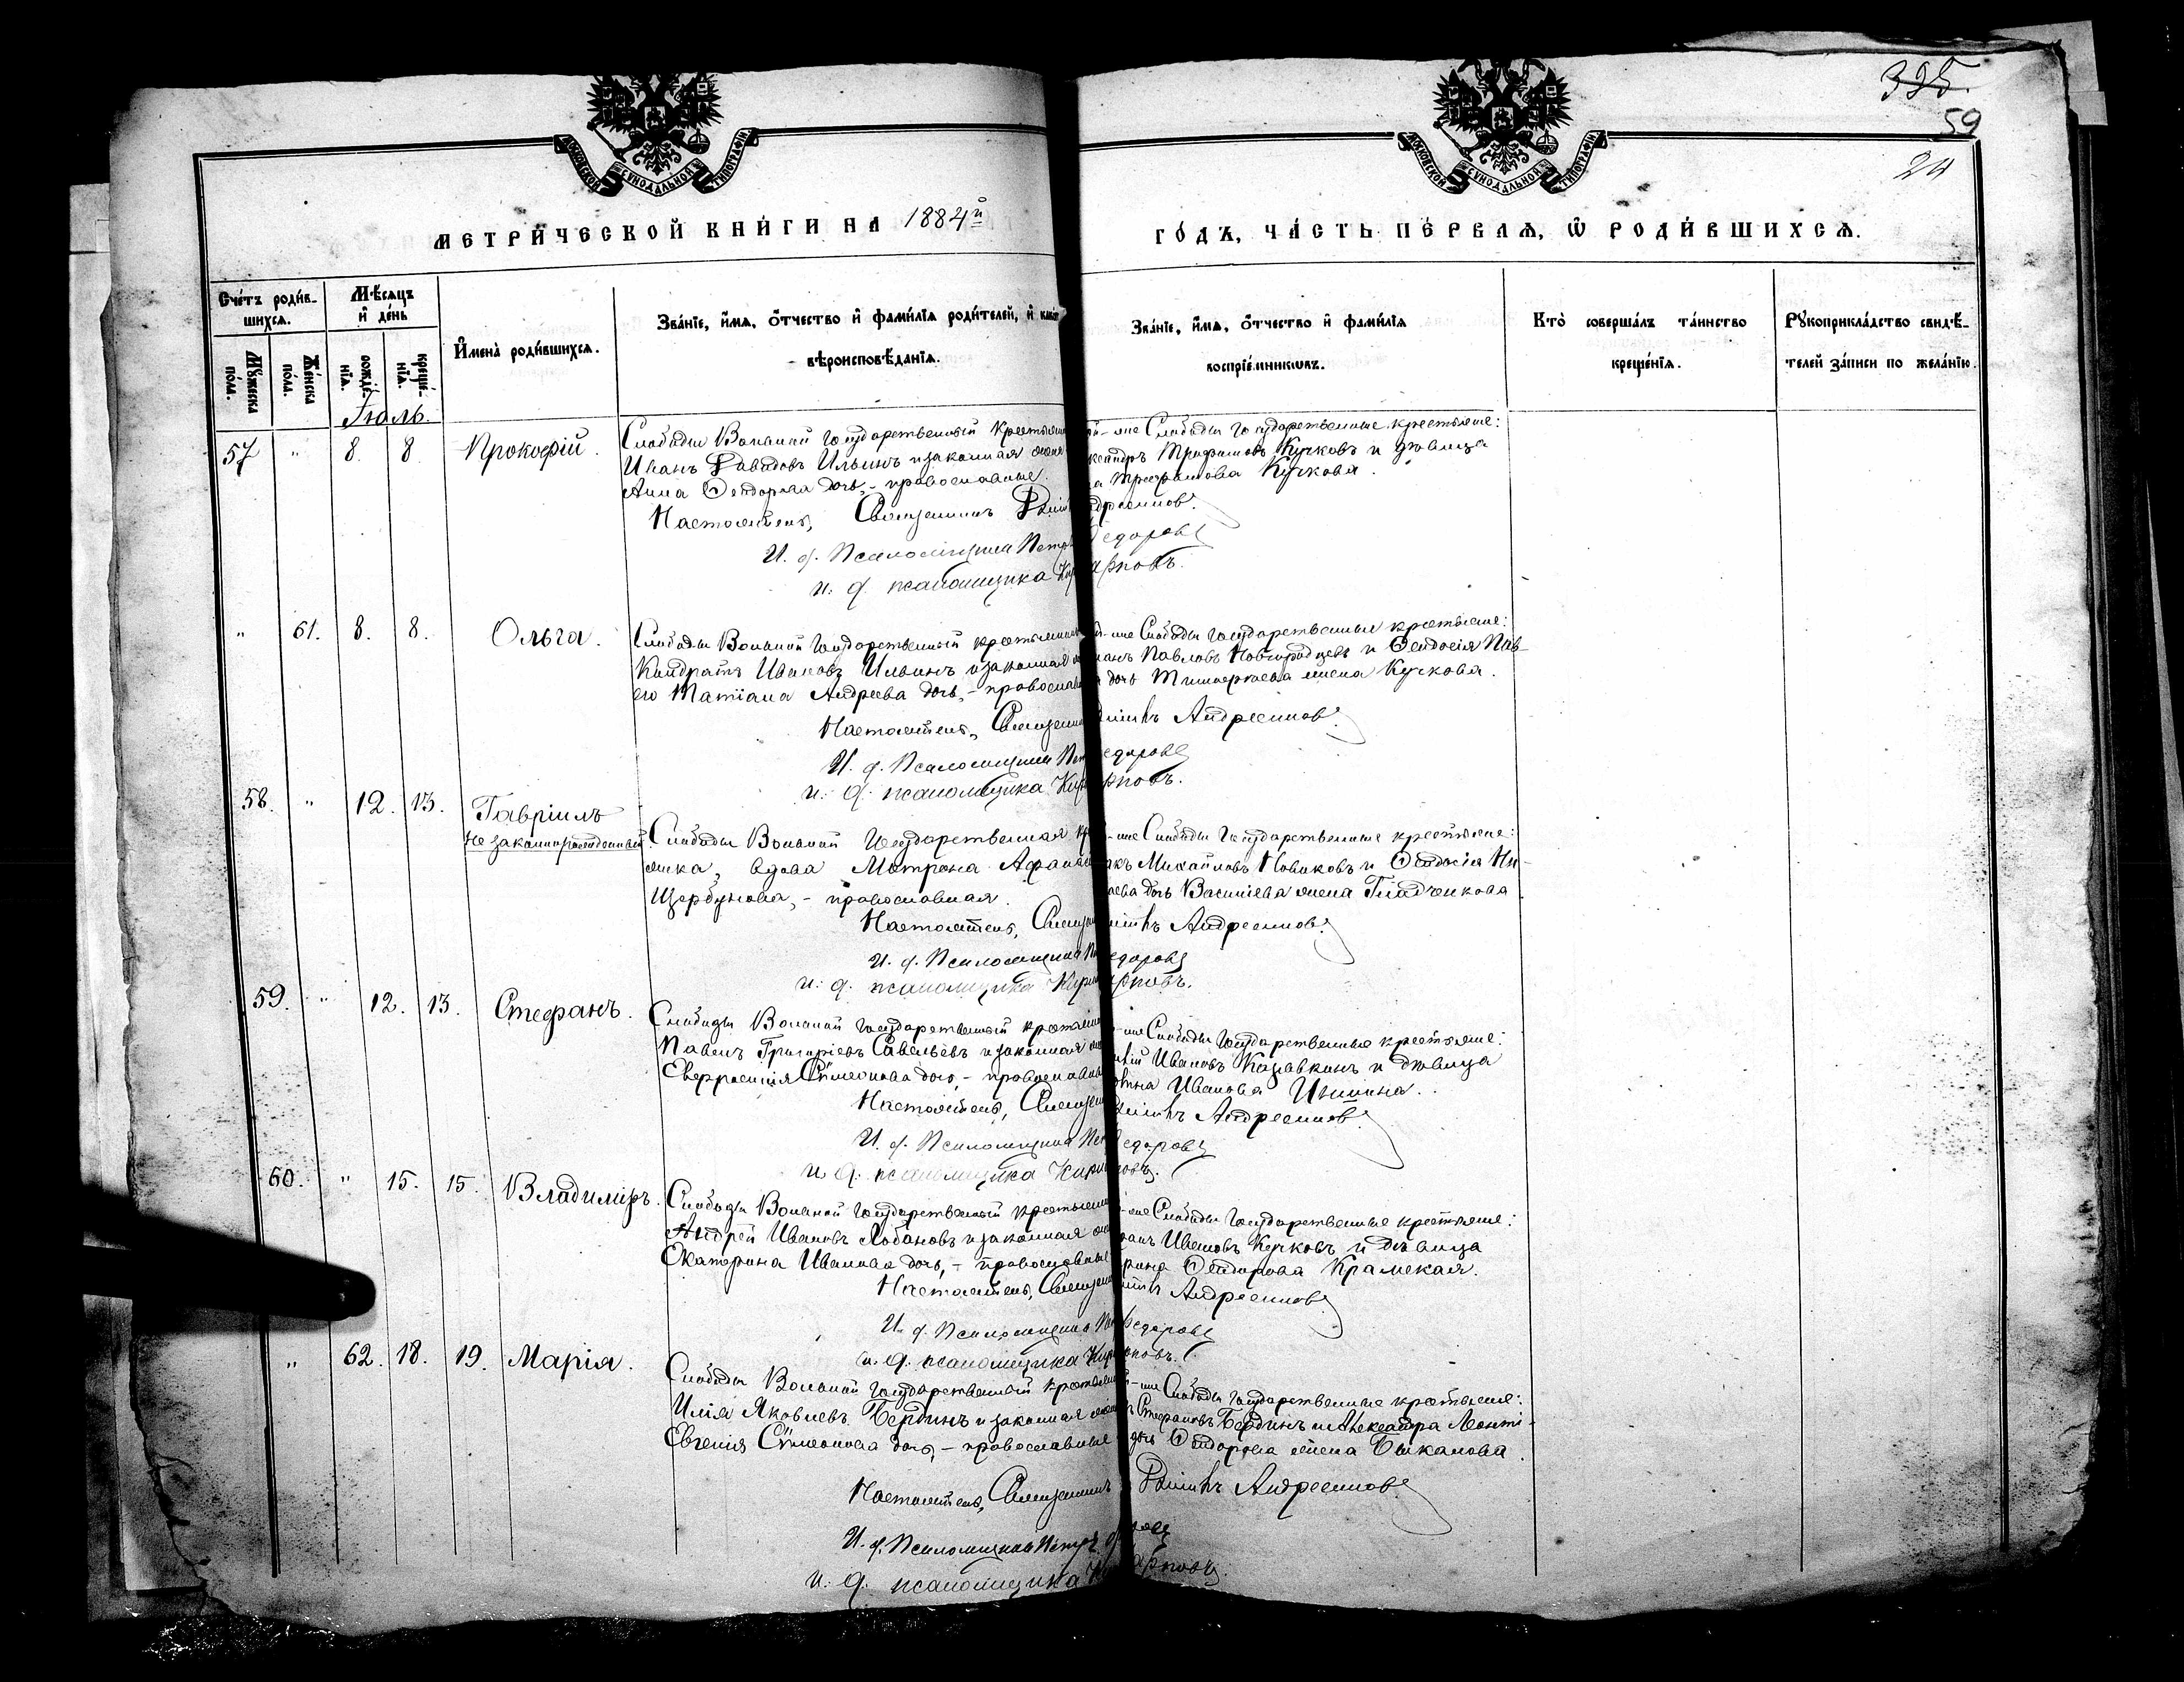 395.
59
24
МОСКОВСКОЙ СѴНОДАЛЬНОЙ ТИПОГРАФІИ
МОСКОВСКОЙ СѴНОДАЛЬНОЙ ТИПОГРАФІИ
МЕТРИ́ЧЕСКОЙ КНИ́ГИ НА 1884й
ГО́ДЪ, ЧА́СТЬ ПЕ́РВАѦ, Ѡ РОДИ́ВШИХСѦ.
Сче́тъ роди́в-
шихсѧ.
Мѣ́сѧцъ
и҆ де́нь
Мꙋ́жеска
по́ла.
Же́нска
по́ла.
рожде́-
нїѧ.
креще́-
нїѧ.
И҆мена̀ роди́вшихсѧ.
Зва́нїе, и҆́мѧ, ѻ҆́тчество и҆ фами́лїѧ роди́телей, и҆
вѣроисповѣ́данїѧ.
Зва́нїе, и҆́мѧ, ѻ҆́тчество и҆ фами́лїѧ
воспрїе́мникѡвъ.
Кто̀ соверша́лъ та́инство
креще́нїѧ.
Рꙋкоприкла́дство свидѣ́-
телей за́писи по жела́нїю.
Іюль.
57 " 8. 8 Прокофій. Слободы Вольной Государственный крестьян
Иванъ Давидовъ Ильинъ и законная жена
Анна Ѳеодорова дочь, – православные.
той-же Слободы Государственные крестьяне:
ксандръ Трофимовъ Кучковъ и дѣвица
а Трофимова Кучкова.
Настоятель, Священникъ Дим дреенков.
И. д. Псаломщика Петр едоровъ
и. д. псаломщика Кир рповъ.
" 61. 8. 8. Ольга. Слободы Вольной Государственный крестьянинъ
Кондратъ Ивановъ Ильинъ и законная ж
его Татіана Андреева дочь, – православн
й-же Слободы Государственные крестьяне:
манъ Павловъ Новгородцевъ и Ѳеодосія Пав-
а дочь Тимофеева жена Кучкова.
Настоятель, Священни Димитрь Андреенков.
И. д. Псаломщика Пет едоровъ
и. д. псаломщика Кир рповъ.
58. " 12. 13. Гавріилъ
незаконнорожденный
Слободы Вольной Государственная кре
янка, вдова Матрона Афанас
Щербунова, – православная.
-же Слободы Государственные крестьяне:
акъ Михайловъ Новиковъ и Ѳеодосія Ни-
аева дочь Васильева жена Гладченкова
Настоятель, Священ митрь Андреенков.
И. д. Псаломщика П едоровъ
и. д. псаломщика Кир рповъ.
59. " 12. 13. Стефанъ. Слободы Вольной Государственный крестьян
Павелъ Григорьевъ Савельевъ и законная ж
Евфросинія Сѵмеонова дочь, – православны
-же Слободы Государственные крестьяне:
Ивановъ Козавкинъ и дѣвица
Иванова
Настоятель, Священ Димитрь Андреенков.
И. д. Псаломщика Пет едоровъ
и. д. псаломщика Кир повъ.
60. " 15. 15. Владиміръ. Слободы Вольной Государственный крестьянин
Андрей Ивановъ Лобановъ и законная ж
Екатерина Иванова дочь, – православные
-же Слободы Государственные крестьяне:
Ивановъ Кучковъ и дѣвица
рина Ѳеодорова Крамская.
Настоятель, Священ митрь Андреенков
И. д. Псаломщика П Федоровъ
и. д. псаломщика Кир повъ.
" 62. 18. 19. Марія. Слободы Вольной Государственный крестьян
Илія Яковлевъ Бердинъ и законная жена
Евгенія Сѵмеонова дочь, – православные
-же Слободы Государственные крестьяне:
Стефановъ Бердинъ и Александра Леонті-
дочь Ѳеодорова жена Быканова.
Настоятель, Священникъ Димитрь Андреенков
И. д. Псаломщика Петр
и. д. псаломщика К арповъ.